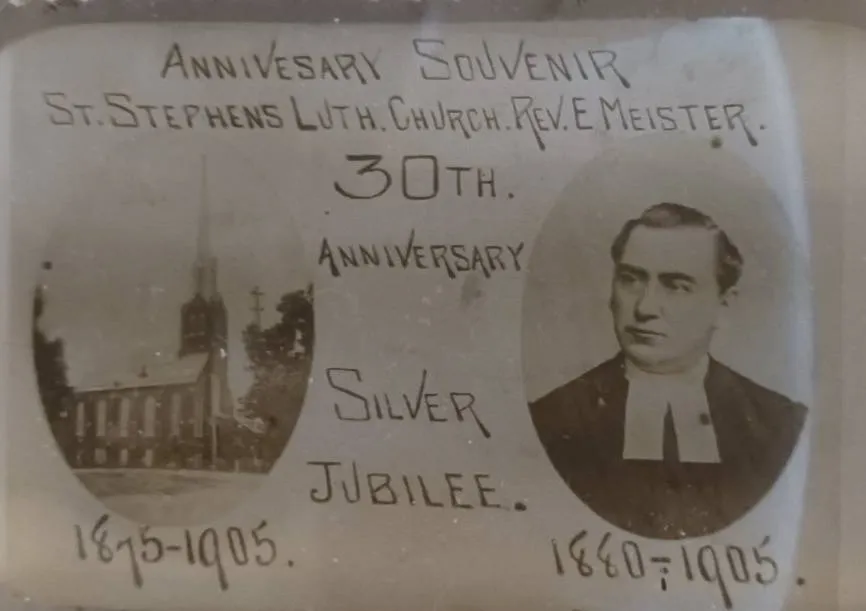 ANNIVESARY SOUVENIR
ST. STEPHENS LUTH. CHURCH. REV. E MEISTER.
30TH.
ANNIVERSARY
SILVER
JUBILEE.
1875-1905.
1880-1905.